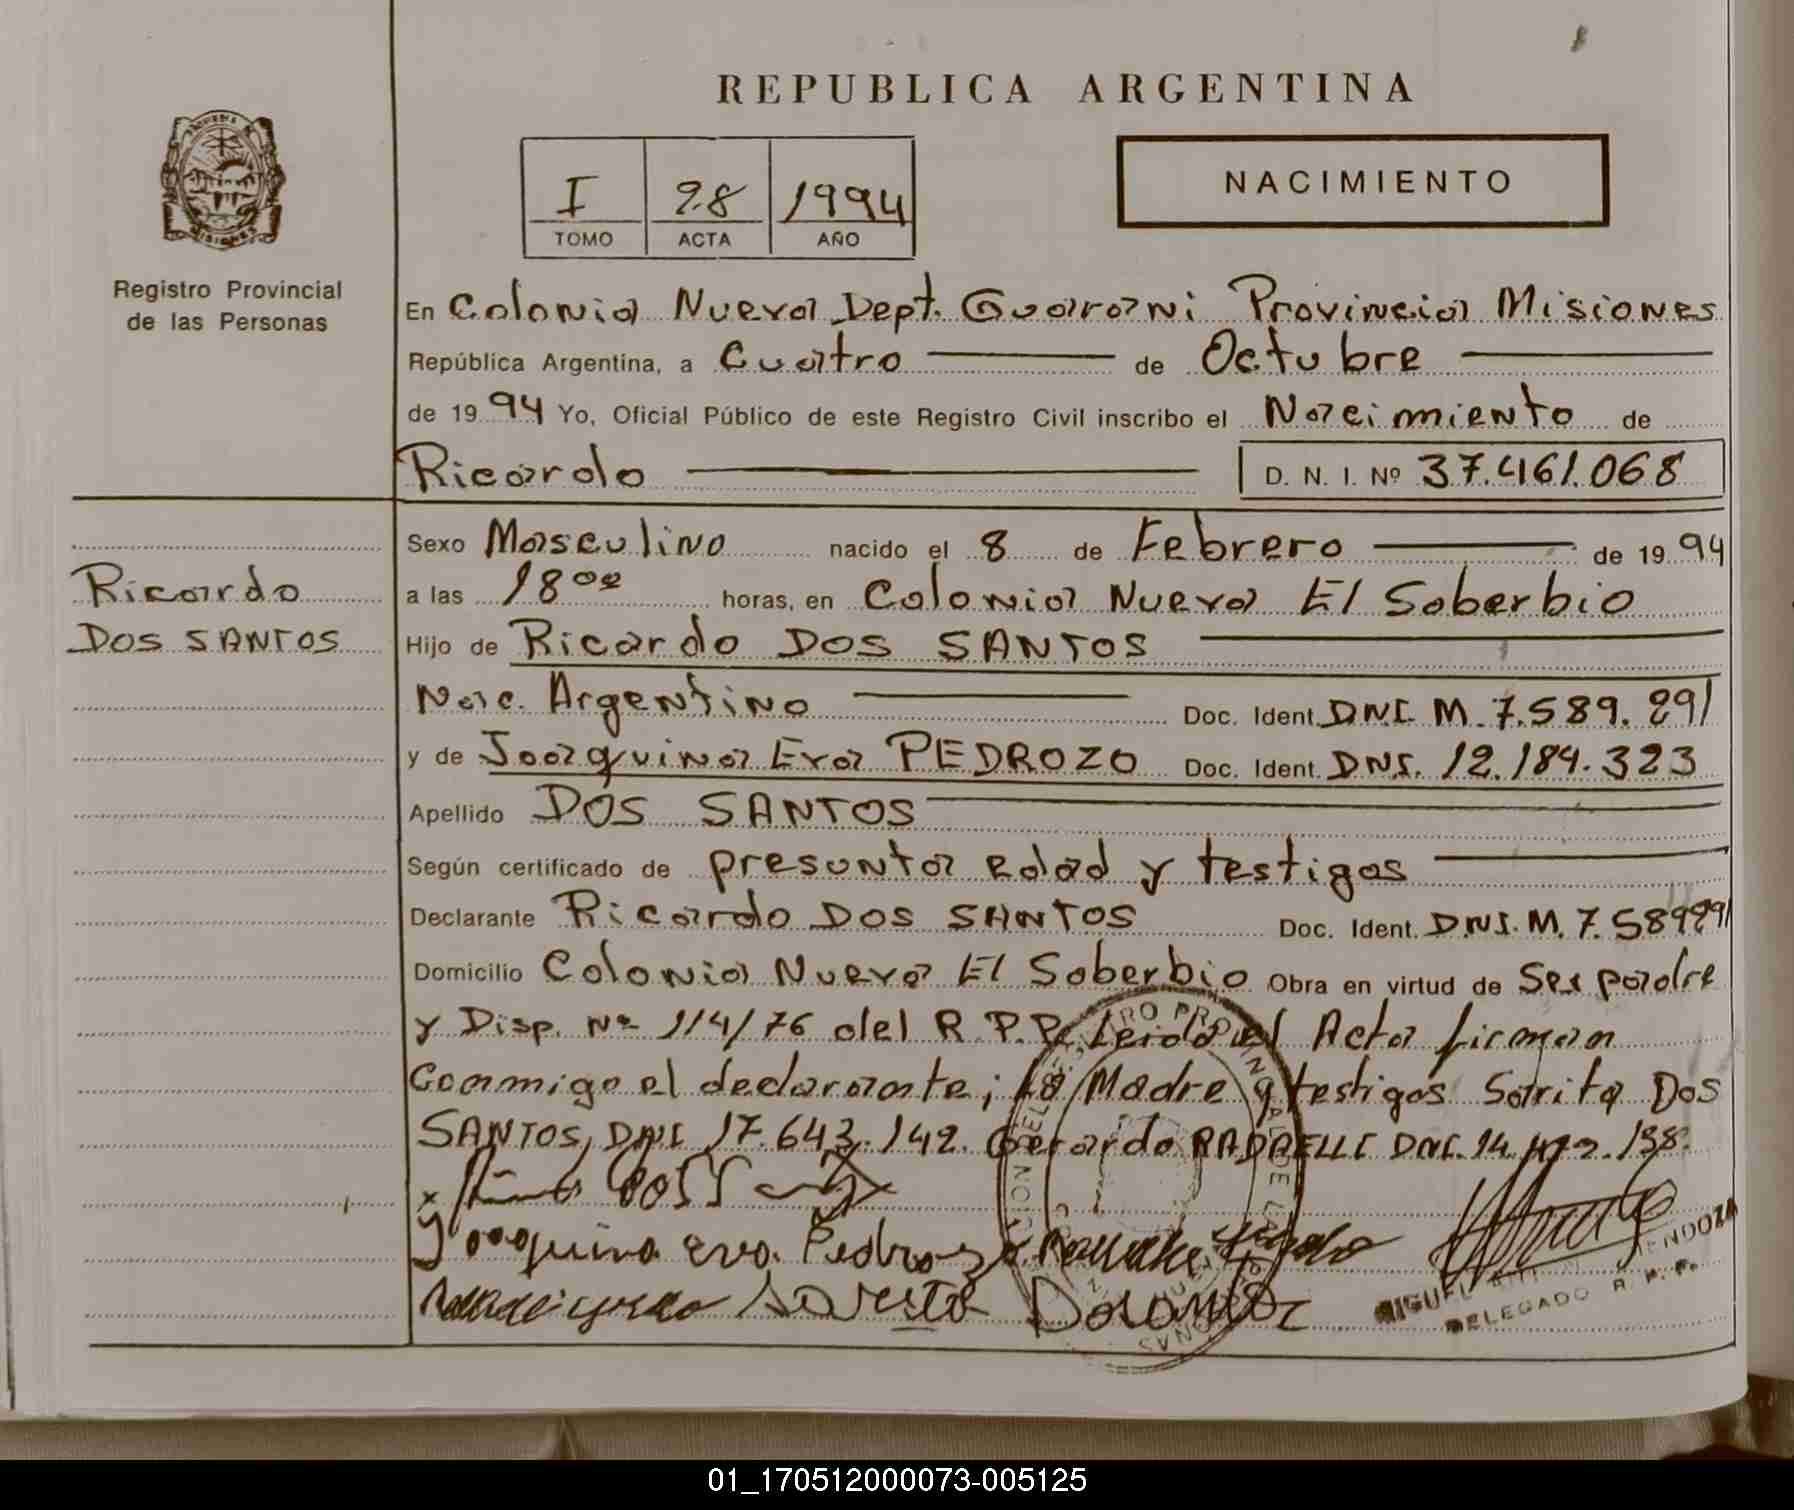 REPUBLICA ARGENTINA
I 28 1994
TOMO ACTA AÑO
NACIMIENTO
MISIONES
Registro Provincial
de las Personas
En Colonia Nueva Dept. Guarani Provincia Misiones
República Argentina, a Cuatro de Octubre
de 1994 Yo, Oficial Público de este Registro Civil inscribo el Nacimiento de
Ricardo D. N. I. Nº 37.461.068
Ricardo
DOS SANTOS
Sexo Masculino nacido el 8 de Febrero de 1994
a las 18 oo horas, en Colonia Nueva El Soberbio
Hijo de Ricardo DOS SANTOS
Nac. Argentino Doc. Ident. DNI. M. 7.589.291
y de Joaquina Eva PEDROZO Doc. Ident. DNI. 12.184.323
Apellido DOS SANTOS
Según certificado de presunta edad y testigos
Declarante Ricardo DOS SANTOS Doc. Ident. DNI. M. 7.589291
Domicilio Colonia Nueva El Soberbio Obra en virtud de Ser padre
y Disp. Nº 114/76 del R.P.P. Leida el Acta firman
Conmigo el declarante; La Madre y testigos Sarita Dos
SANTOS, DNI 17.643.142. Gerardo DNI. 14. .138.
Joaquina eva. Pedrozo
MIGUEL MENDOZA
DELEGADO R. P. P.
01_170512000073-005125